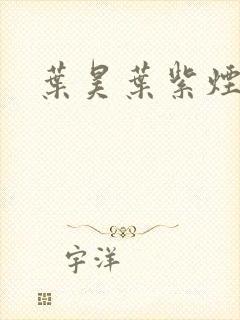 葉昊葉紫煙
宇洋